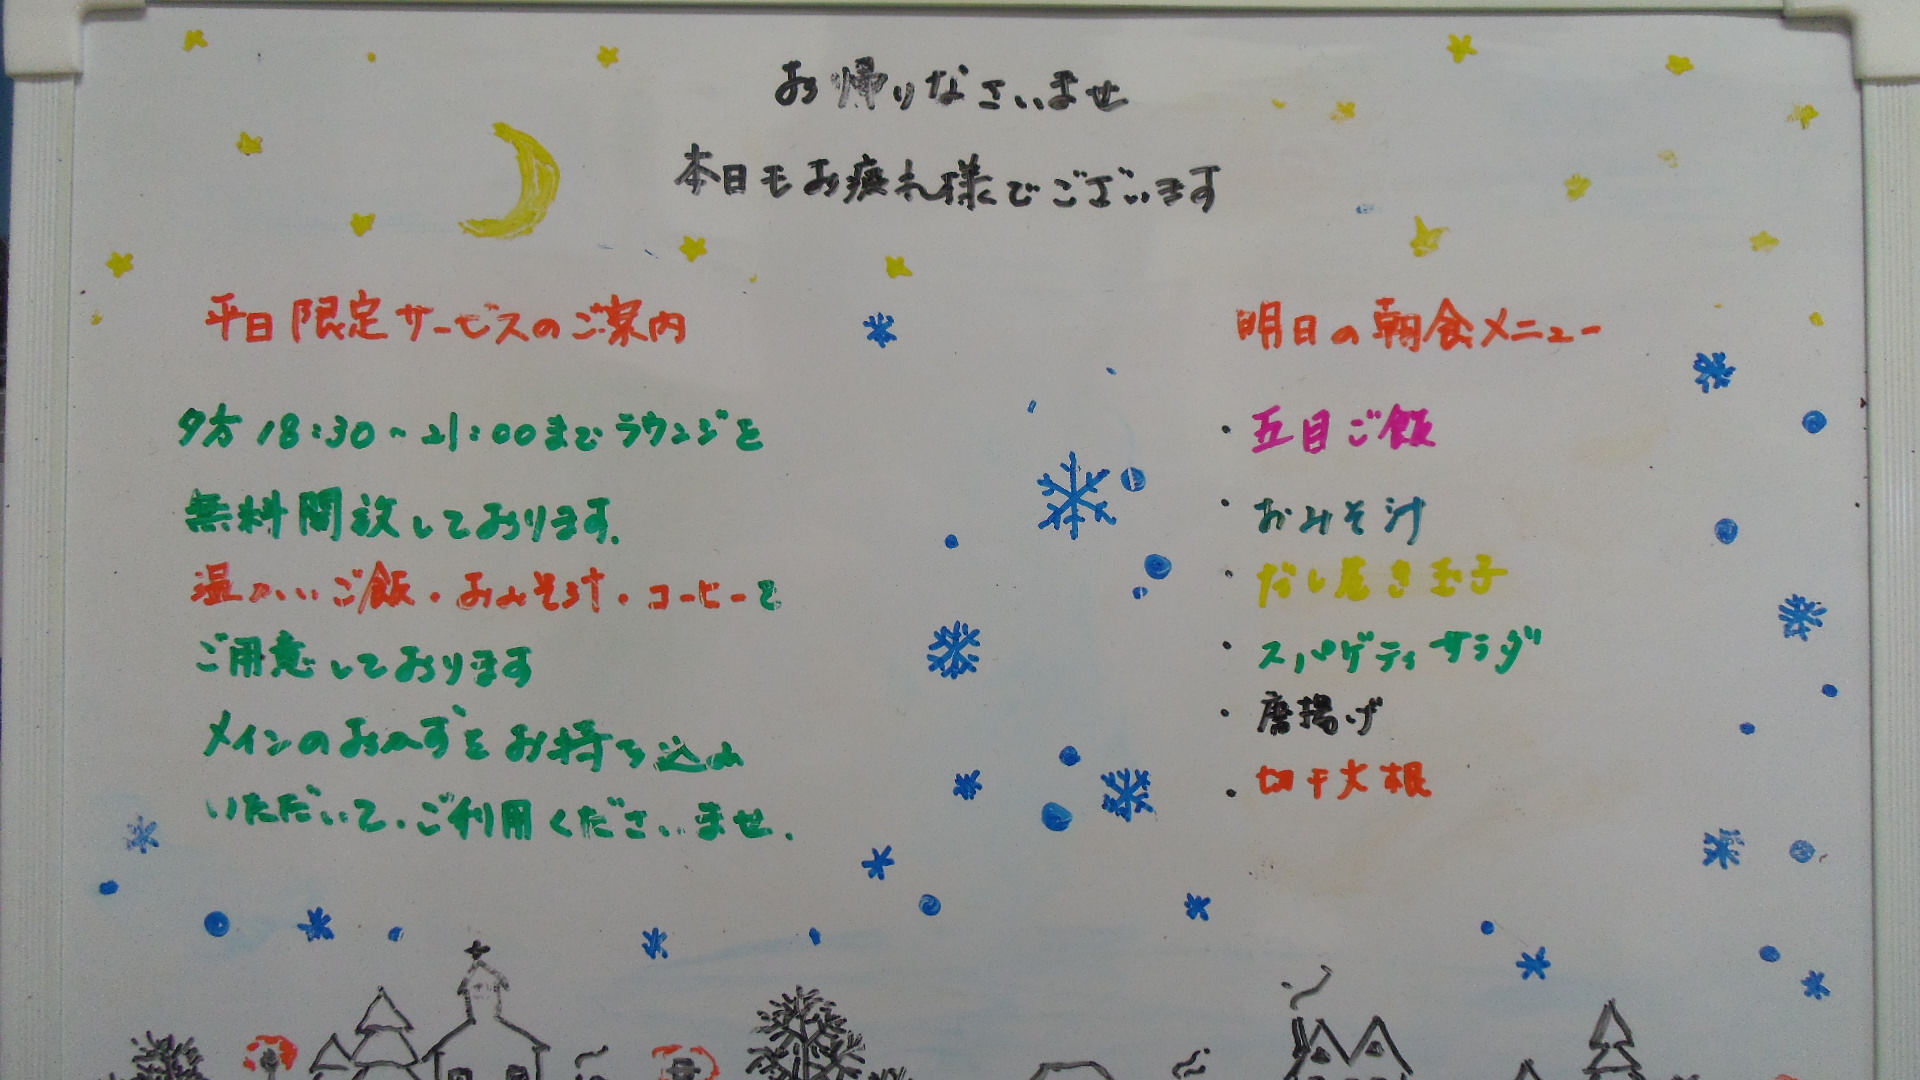 お帰りなさいませ
本日もお疲れ様でございます
平日限定サービスのご案内
夕方18:30~21:00までラウンジを
無料開放しております。
温かいご飯・おみそ汁・コーヒーを
ご用意しております
メインのおかずをお持ち込み
いただいて、ご利用くださいませ。
明日の朝食メニュー
・五目ご飯
・おみそ汁
・だし巻き玉子
・スパゲティサラダ
・唐揚げ
・切干大根